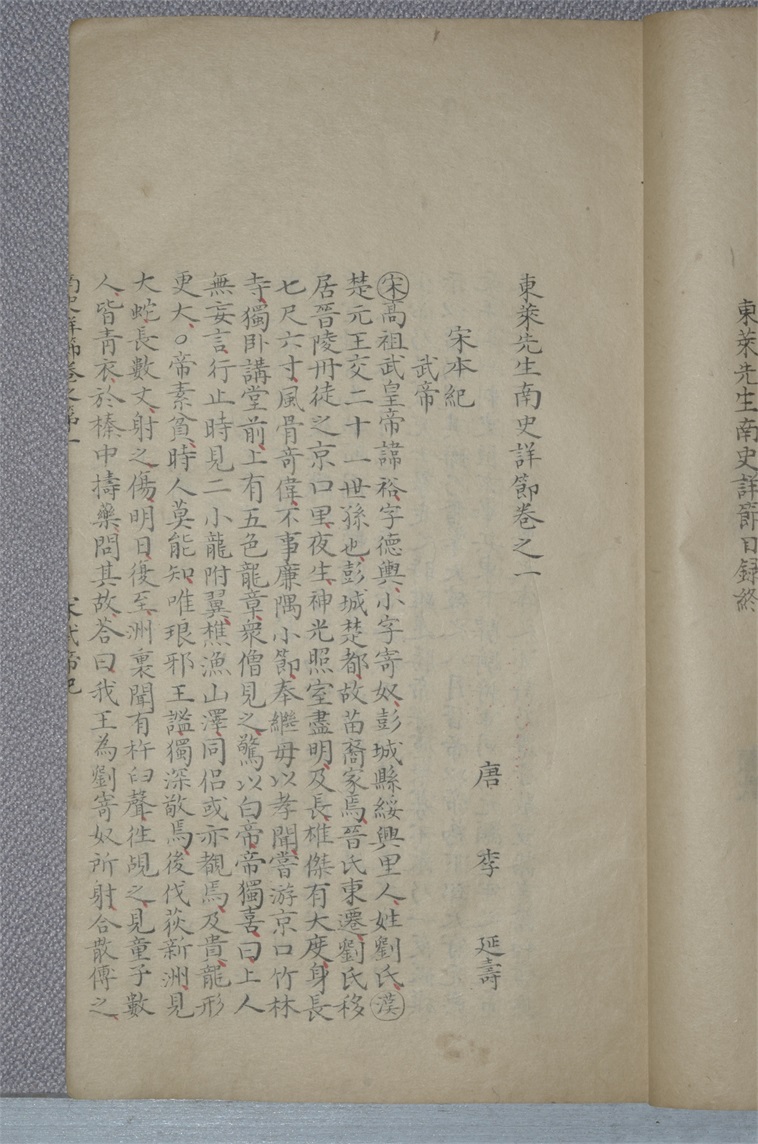 東萊先生南史詳節目録終
東萊先生南史詳節卷之一
唐 李 延壽
宋本紀
武帝
宋高祖武皇帝諱裕字德輿、小字寄奴、彭城縣綏輿里人、姓劉氏、漢
楚元王交二十一世孫也、彭城楚都、故苗裔家焉、晉氏東遷、劉氏移
居晉陵丹徒之京口里、夜生、神光照室盡明、及長、雄傑有大度、身長
七尺六寸、風骨奇偉、不事廉隅小節、奉繼母以孝聞、嘗游京口竹林
寺、獨卧講堂前、上有五色龍章、衆僧見之、驚以白帝、帝獨喜曰、上人
無妄言、行止時見二小龍附翼、樵漁山澤、同侶或亦覩焉、及貴、龍形
更大、○帝素貧、時人莫能知、唯琅邪王謐獨深敬焉、後伐荻新洲、見
大蛇長數丈、射之傷、明日、復至洲、裏聞有杵臼聲、徃覘之、見童子數
人、皆青衣、於榛中擣藥、問其故、荅曰、我王為劉寄奴所射、合散傅之、
南史詳節卷之第一 宋武帝紀